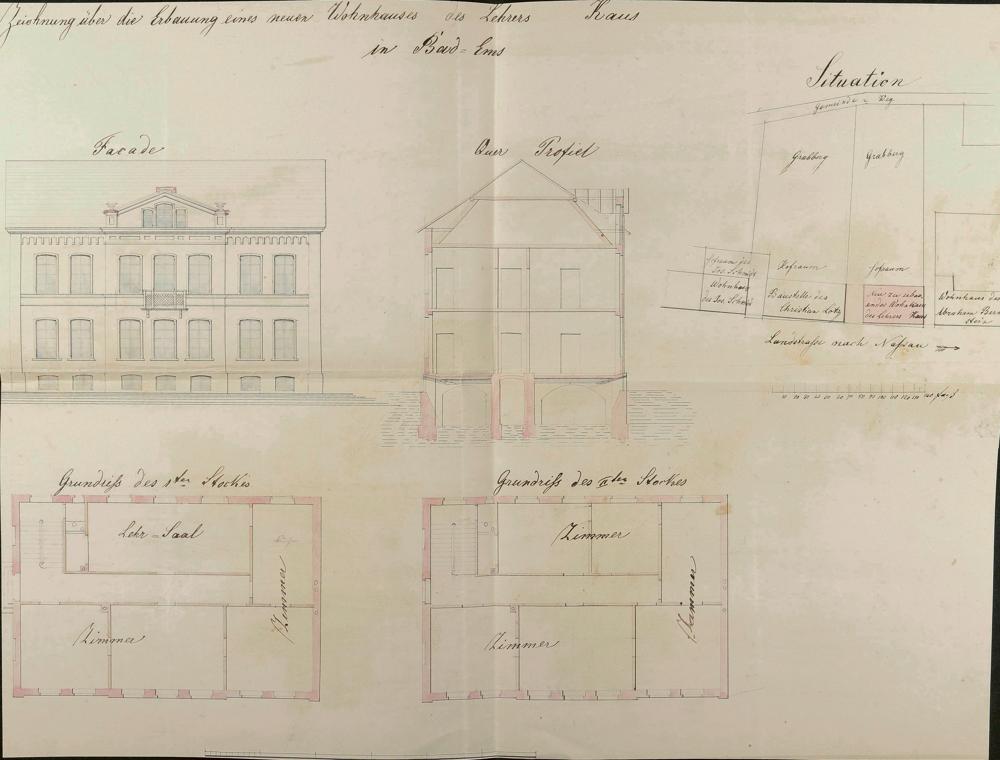 Zeichnung über die Erbauung eines neuen Wohnhauses des Lehrers Kaus
in Bad=Ems
Situation
Gemeinde = Weg
Façade
Quer Profiel
Grabberg
Grabberg
Hofraum des
Jos. Schmidt
Hofraum
Hofraum
Wohnhaus
des Jos. Schmidt
Baustelle des
Christian Lotz
Neu zu erbau-
endes Wohnhaus
des Lehrers Kaus
Wohnhaus des
Abraham Bern
stein
Landstraße nach Nassau
Grundriß des 1ten Stockes
Grundriß des IIten Stockes
Lehr=Saal
Zimmer
Zimmer
Zimmer
Kammer
Zimmer